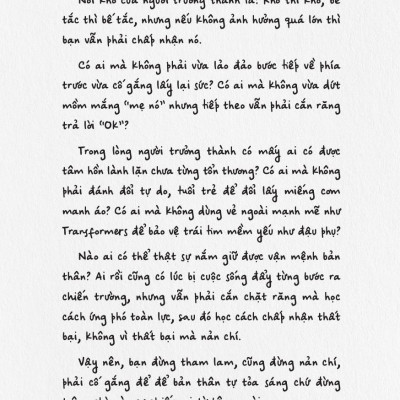 Nỗi khổ của người trưởng thành là: Khổ thì khổ, bế
tắc thì bế tắc, nhưng nếu không ảnh hưởng quá lớn thì
bạn vẫn phải chấp nhận nó.
Có ai mà không phải vừa lảo đảo bước tiếp về phía
trước vừa cố gắng lấy lại sức? Có ai mà không vừa dứt
mồm mắng "mẹ nó" nhưng tiếp theo vẫn phải cắn răng
trả lời "Ok"?
Trong lòng người trưởng thành có mấy ai có được
tâm hồn lành lặn chưa từng tổn thương? Có ai mà không
phải đánh đổi tự do, tuổi trẻ để đổi lấy miếng cơm
manh áo? Có ai mà không dùng vẻ ngoài mạnh mẽ như
Transformers để bảo vệ trái tim mềm yếu như đậu phụ?
Nào ai có thể thật sự nắm giữ được vận mệnh bản
thân? Ai rồi cũng có lúc bị cuộc sống đẩy từng bước ra
chiến trường, nhưng vẫn phải cắn chặt răng mà học
cách ứng phó toàn lực, sau đó học cách chấp nhận thất
bại, không vì thất bại mà nản chí.
Vậy nên, bạn đừng tham lam, cũng đừng nản chí,
phải cố gắng để để bản thân tự tỏa sáng chứ đừng